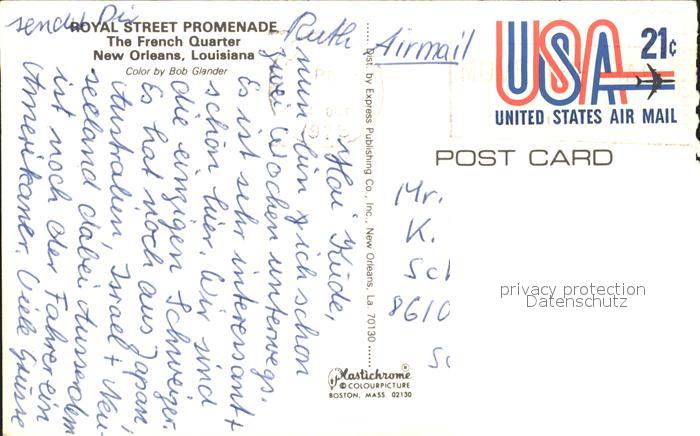 ROYAL STREET PROMENADE
The French Quarter
New Orleans, Louisiana
Color by Bob Glander
Hoi
nun bin ich schon
zwei Wochen unterwegs.
Es ist sehr interessant +
schön hier. Wir sind
die einzigen Schweizer.
Es hat noch aus Japan,
Australien, Israel + Neu-
seeland dabei. Ausserdem
ist noch der Fahrer ein
Amerikaner. Viele Grüsse
sendet Dir
Ruth
Dist. by Express Publishing Co., Inc., New Orleans, La. 70130
Plastichrome
© COLOURPICTURE
BOSTON, MASS. 02130
Airmail
USA 21c
UNITED STATES AIR MAIL
POST CARD
Mr.
K.
8610
privacy protection
Datenschutz